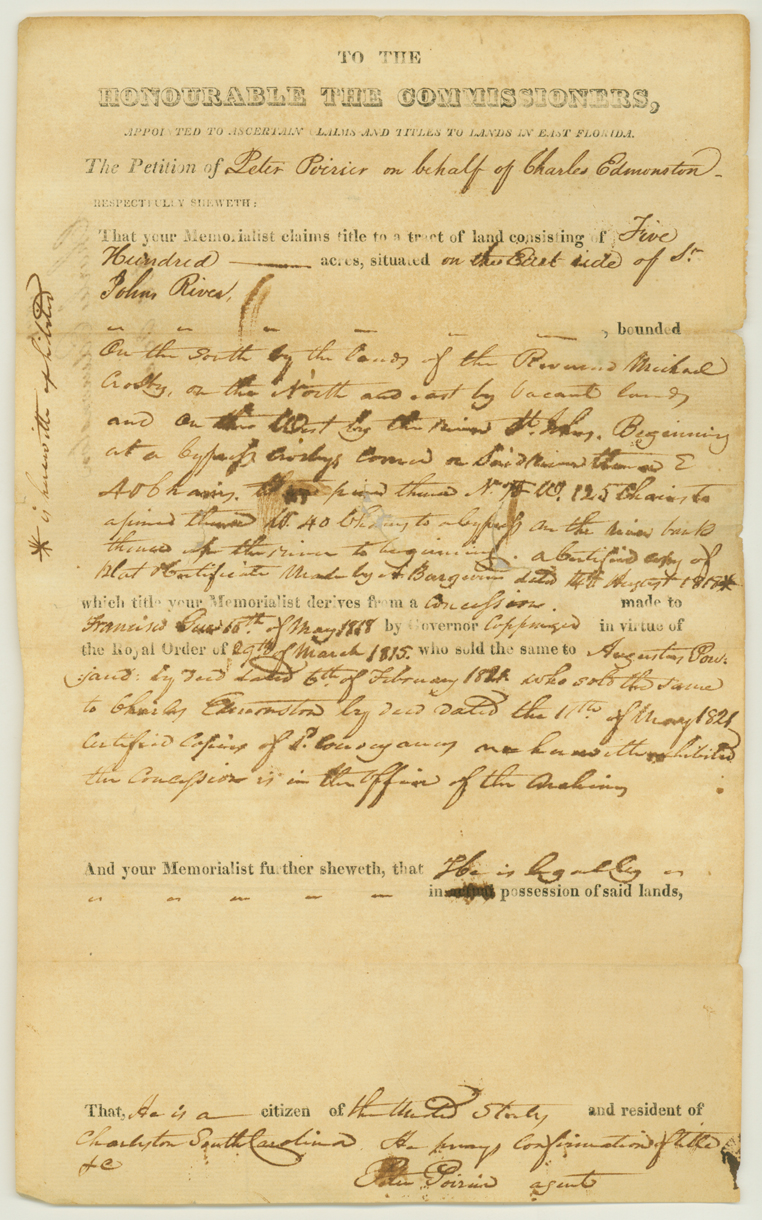 TO THE
HONOURABLE THE COMMISSIONERS,
APPOINTED TO ASCERTAIN CLAIMS AND TITLES TO LANDS IN EAST FLORIDA.
The Petition of Peter Poirier on behalf of Charles Edmonston
RESPECTFULLY SHEWETH:
That your Memorialist claims title to a tract of land consisting of Five
Hundred acres, situated on the East side of St
Johns River,
, bounded
On the South by the lands of the Reverend Michael
Crosby, on the North and east by Vacant lands
and On the West by the river St. Johns. Beginning
at a Cypress Crosbys corner on Said river thence E
40 Chains, pine thence N. W. 125 Chains to
a pine thence W. 40 Chains to a Cypress On the river bank
thence up the river to beginning. a Certified copy of
Plat & Certificate Made by A Burgevin dated 14th August 1819 *
* is herewith exhibited
which title your Memorialist derives from a Concession. made to
Francisco of May 1818 by Governor Coppinger in virtue of
the Royal Order of 29th of March 1815. who sold the same to Augustus Pou-
jaud: by deed dated 6th of February 1821. who sold the same
to Charles Edmonston by deed dated the 11th of May 1821
Certified Copies of Sd. Conveyances are herewith exhibited
the Concession is in the Office of the Archives
And your Memorialist further sheweth, that He is legally
in actual possession of said lands,
That, He is a citizen of the United States and resident of
Charleston South Carolina He prays Confirmation of title
&c
Peter Poirier agent